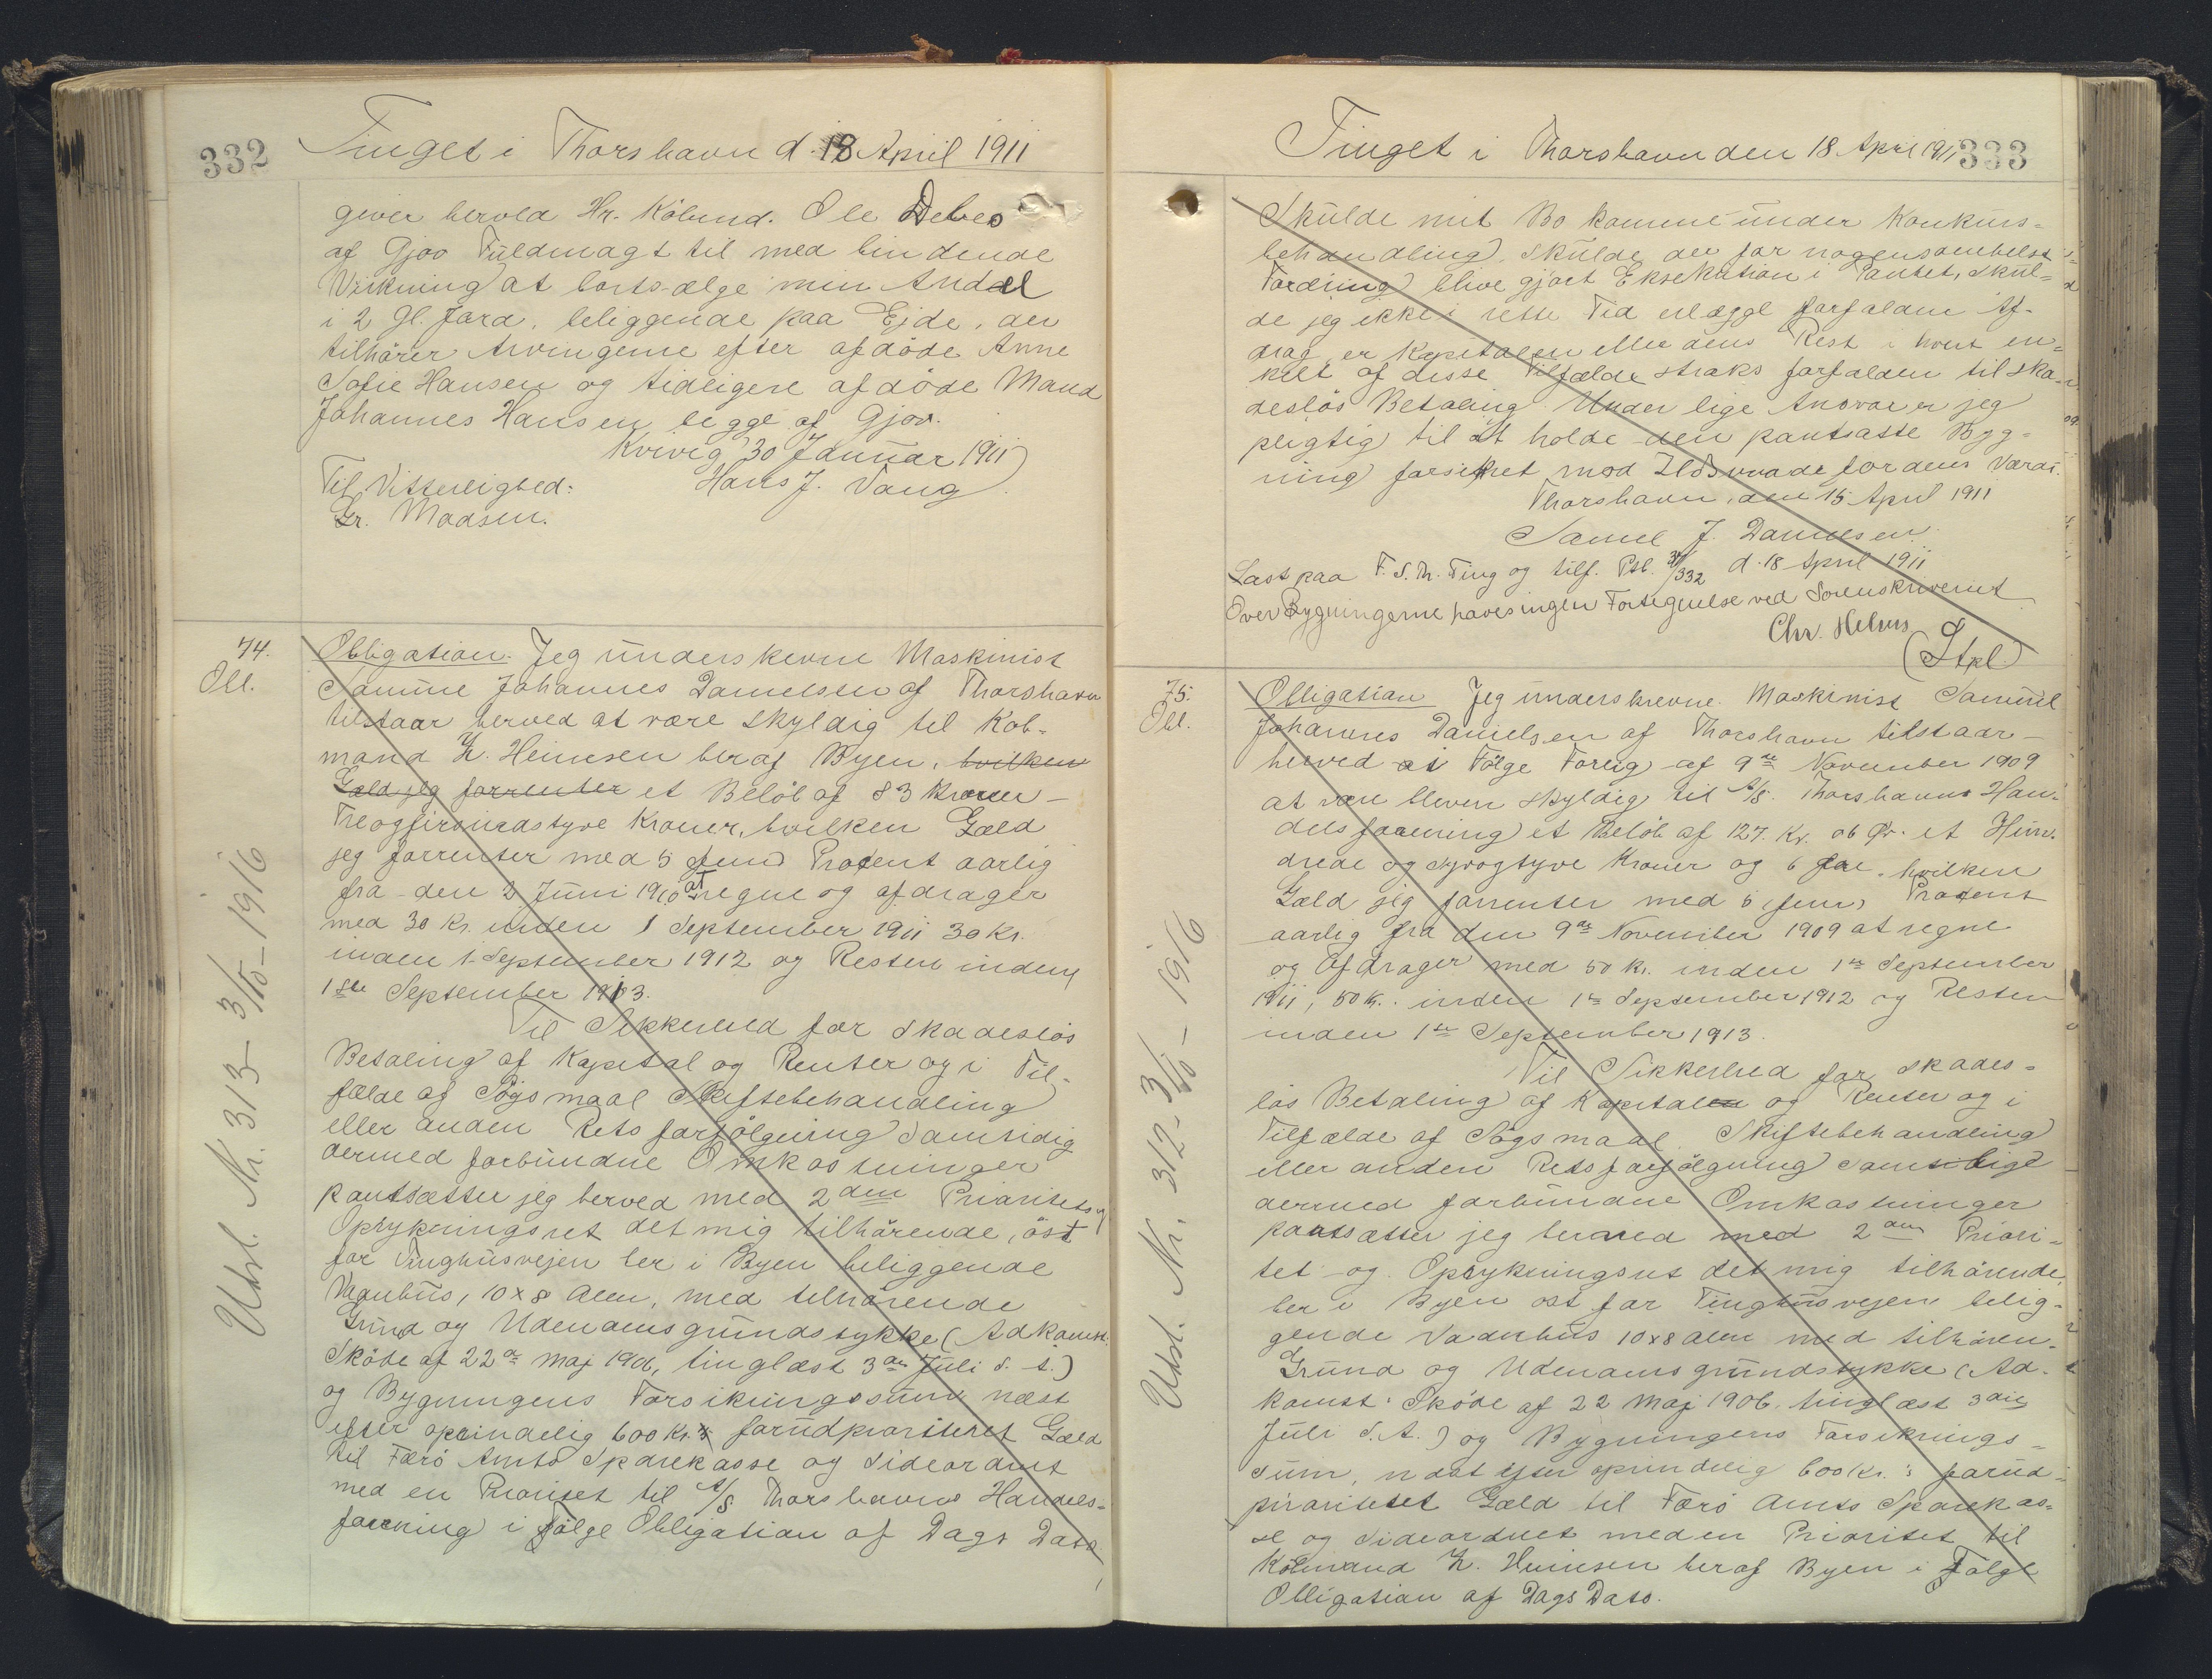 332
Tinget i Thorshavn d. 18 April 1911
giver herved Hr. Købmd. Ole Debes
af Gjov Fuldmagt til med bindende
Virkning at bortsælge min Andel
i 2 Gl. Jord, beliggende paa Ejde, der
tilhører Arvingerne efter afdøde Anne
Sofie Hansen og tidligere afdøde Mand
Johannes Hansen, begge af Gjov.
Kvivig 30 Januar 1911
Til Vitterlighed: Hans J. Vang
Gr. Madsen.
74.
Obl.
Obligation. Jeg underskevne Maskinist
Samme Johannes Danielsen af Thorshavn
tilstaar herved at være skyldig til Køb-
mand Z. Heinesen heraf Byen, hvilken
Gæld jeg forrenter et Beløb af 83 Kroner –
Treogfirsindstyve Kroner, hvilken Gæld
jeg forrenter med 5 fem Procent aarlig
fra den 2 Juni 1910 at regne og afdrager
med 30 Kr. inden 1 September 1911 30 Kr.
inden 1. September 1912 og Resten inden
1ste September 1913.
Til Sikkerhed for skadesløs
Betaling af Kapital og Renter og i Til-
fælde af Søgsmaal Skiftebehandling
eller anden Retsforfølgning samtidig
dermed forbundne Omkostninger
pantsætter jeg herved med 2den Prioritets og
Oprykningsret det mig tilhørende, øst
for Tinghusvejen her i Byen beliggende
Vaanhus, 10 x 8 Alen, med tilhørende
Grund og Udenomsgrundstykke (Adkomst:
Skøde af 22de Maj 1906, tinglæst 3die Juli s. A.)
og Bygningens Forsikringssum næst
efter oprindelig 600 Kr. s forudprioriteret Gæld
til Færø Amts Sparekasse og sideordnet
med en Prioritet til A/S Thorshavns Handels-
forening i Følge Obligation af Dags Dato
Udsl. Nr. 313 - 3/10 - 1916
Tinget i Thorshavn den 18 April 1911
333
Skulde mit Bo komme under Konkurs-
behandling, skulde der for nogensomhelst
Fordring blive gjort Eksekution i Pantet, skul-
de jeg ikke i rette Tid erlægge forfaldne Af-
drag, er Kapitalen eller dens Rest i hvert en-
kelt af disse Tilfælde straks forfalden til ska-
desløs Betaling. Under lige Ansvar er jeg
pligtig til at holde den pantsatte Byg-
ning forsikret mod Ildsvaade for dens Værdi.
Thorshavn, den 15 April 1911
Samel J. Danielsen
Læst paa F. S. Th. Ting og tilf. Ptb. /332 d. 18 April 1911
Over Bygningerne haves ingen Fortegnelse ved Sorenskriveriet
Chr. Helms
(Stpl)
75.
Obl.
Obligation Jeg underskrevne Maskinist Samuel
Johannes Danielsen af Thorshavn tilstaar
herved at i Følge Forlig af 9de November 1909
at være bleven skyldig til A/S. Thorshavns Han-
delsforening et Beløb af 127 Kr. 06 Ør. et Hun-
drede og syvogtyve Kroner og 6 Øre, hvilken
Gæld jeg forrenter med 5 fem Procent
aarlig fra den 9de November 1909 at regne
og Afdrager med 50 Kr. inden 1ste September
1911, 50 Kr. inden 1ste September 1912 og Resten
inden 1ste September 1913.
Til Sikkerhed for skades-
løs Betaling af Kapitalen og Renter og i
Tilfælde af Søgsmaal, Skiftebehandling
eller anden Retsforfølgning samtlige
dermed forbundne Omkostninger
pantsætter jeg herved med 2den Priori-
tet og Oprykningsret det mig tilhørende,
her i Byen øst for Tinghusvejen belig-
gende Vaanhus 10 x 8 Alen med tilhøren-
Grund og Udenomsgrundstykke (Ad-
komst: Skøde af 22 Maj 1906, tinglæst 3die
Juli s. A.) og Bygningens Forsikrings-
sum, næst efter oprindelig 600 Kr. s forud-
prioritetet Gæld til Færø Amts Sparekas-
se og sideordnet med en Prioritet til
Købmand Z. Heinesen heraf Byen i Følge
Obligation af Dags Dato.
Udsl. Nr. 312 - 3/10 - 1916